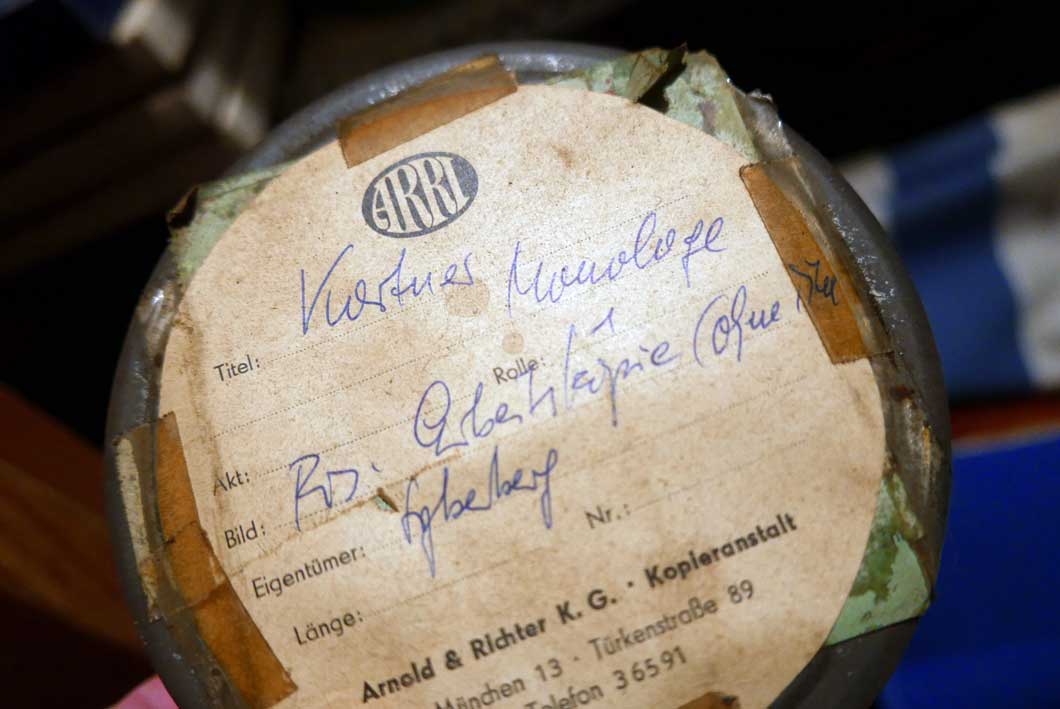 ARRI
Titel: Kortner Monologe
Rolle: 1
Akt:
Bild: Pos. Arbeitskopie (ohne
Eigentümer: Syberberg
Länge: Nr.:
Arnold & Richter K. G. · Kopieranstalt
München 13 · Türkenstraße 89
Telefon 36591